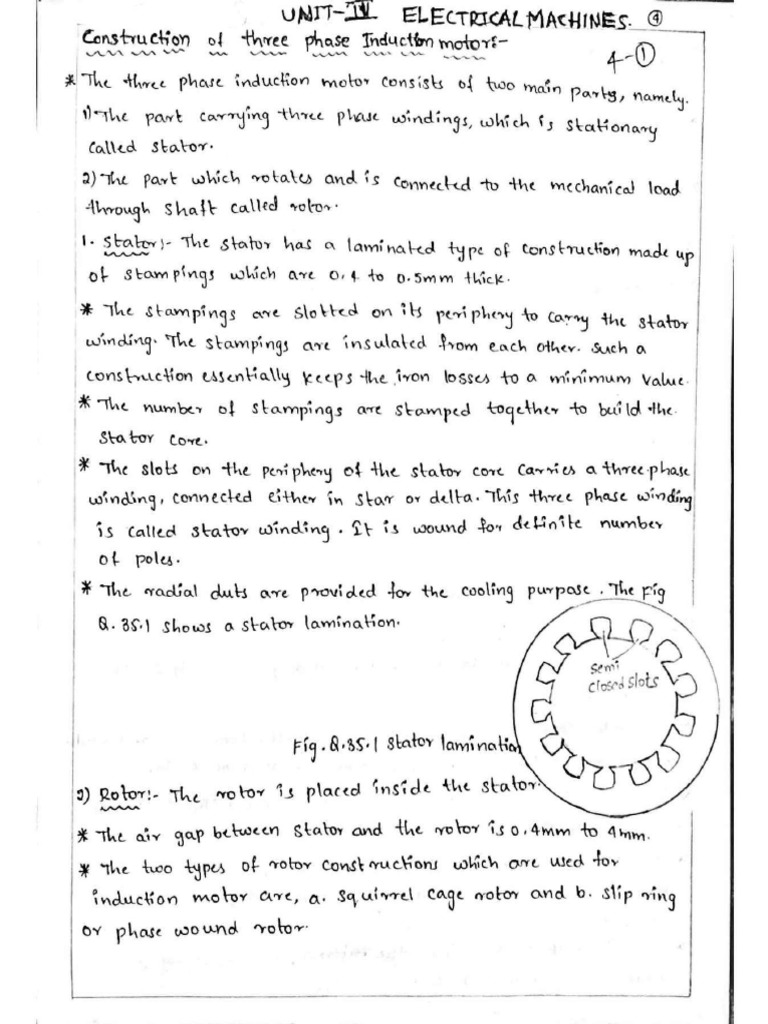 UNIT-IV ELECTRICAL MACHINES. ④
Construction of three phase Induction motor:-
4-①
* The three phase induction motor consists of two main parts, namely.
1) The part carrying three phase windings, which is stationary
called stator.
2) The part which rotates and is connected to the mechanical load
through shaft called rotor.
1. Stator:- The stator has a laminated type of construction made up
of stampings which are 0.4 to 0.5mm thick.
* The stampings are slotted on its periphery to carry the stator
winding. The stampings are insulated from each other. Such a
construction essentially keeps the iron losses to a minimum value.
* The number of stampings are stamped together to build the
stator core.
* The slots on the periphery of the stator core carries a three phase
winding, connected either in star or delta. This three phase winding
is called stator winding. It is wound for definite number
of poles.
* The radial duts are provided for the cooling purpose. The Fig
Q.35.1 shows a stator lamination.
Semi
closed slots
Fig. Q.35.1 Stator lamination
2) Rotor:- The rotor is placed inside the stator.
* The air gap between stator and the rotor is 0.4mm to 4mm.
* The two types of rotor constructions which are used for
induction motor are, a. squirrel cage rotor and b. slip ring
or phase wound rotor.